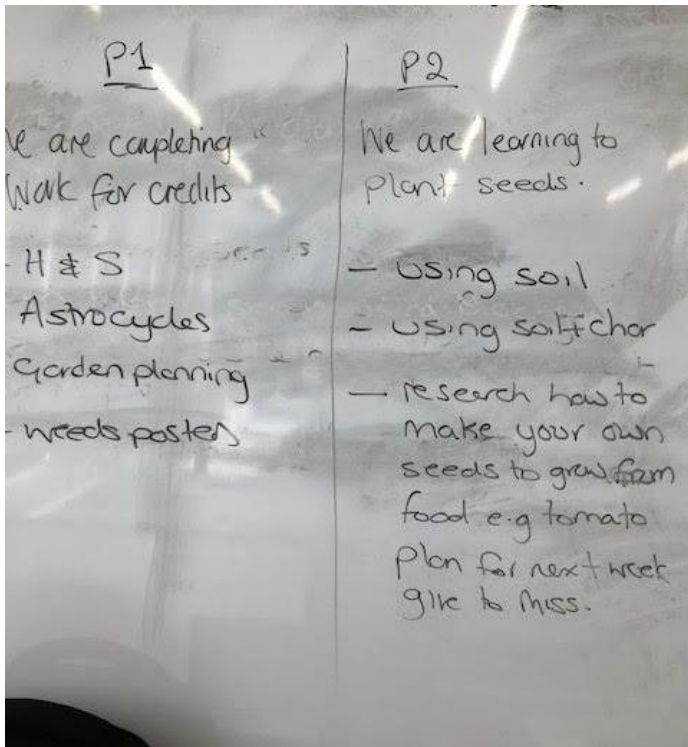 P1
We are completing
Work for credits
- H & S
Astrocycles
Garden planning
- weeds posters
P2
We are learning to
plant seeds.
- using soil
- using soil + char
- research how to
make your own
seeds to grow from
food e.g tomato
plan for next week
give to Miss.